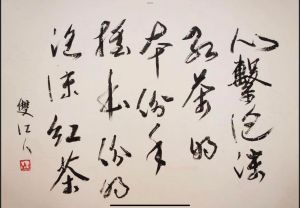 心繫泡沫
紅茶的
本份手
搖本份的
泡沫紅茶
雙江人